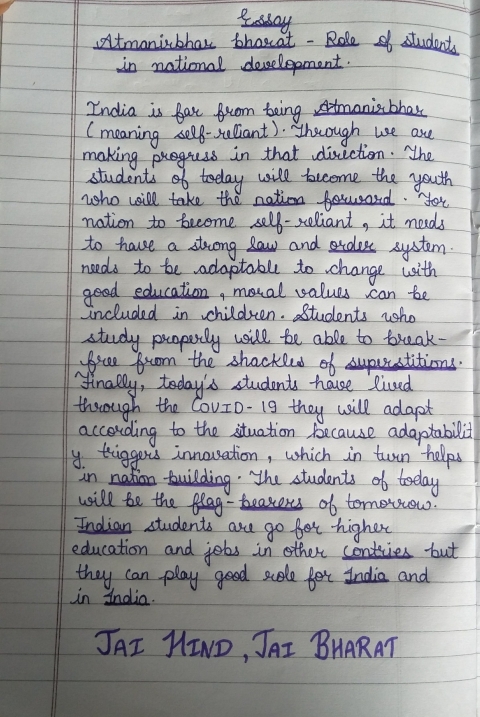 Essay
Atmanirbhar bharat - Role of students
in national development.
India is far from being Atmanirbhar
(meaning self-reliant). Through we are
making progress in that direction. The
students of today will become the youth
who will take the nation forward. For
nation to become self-reliant, it needs
to have a strong law and order system.
needs to be adaptable to change with
good education, moral values can be
included in children. Students who
study properly will be able to break-
free from the shackles of superstitions.
Finally, today's students have lived
through the COVID-19 they will adapt
according to the situation because adaptabilit
y triggers innovation, which in turn helps
in nation building. The students of today
will be the flag-bearers of tomorrow.
Indian students are go for higher
education and jobs in other contries but
they can play good role for India and
in India.
JAI HIND, JAI BHARAT